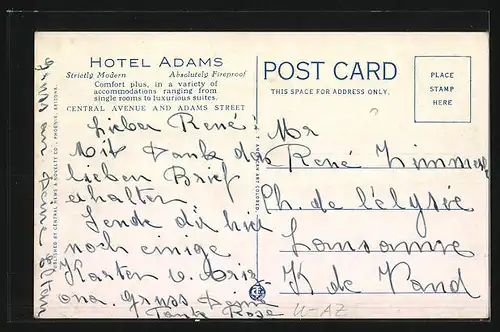 HOTEL ADAMS
Strictly Modern Absolutely Fireproof
Comfort plus, in a variety of
accommodations ranging from
single rooms to luxurious suites.
CENTRAL AVENUE AND ADAMS STREET
POST CARD
THIS SPACE FOR ADDRESS ONLY.
PLACE
STAMP
HERE
Lieber René!
Mit Dank das
lieben Brief
erhalten.
Sende dir hier
noch einige
Karten v. Ariz-
ona. Gruss Deine
Tante Rose
Mr
René Zimmer
Ch. de l'élysée
Lausanne
K de Vaud
U-AZ
PUBLISHED BY CENTRAL NEWS & NOVELTY CO., PHOENIX, ARIZONA.
Gruss an